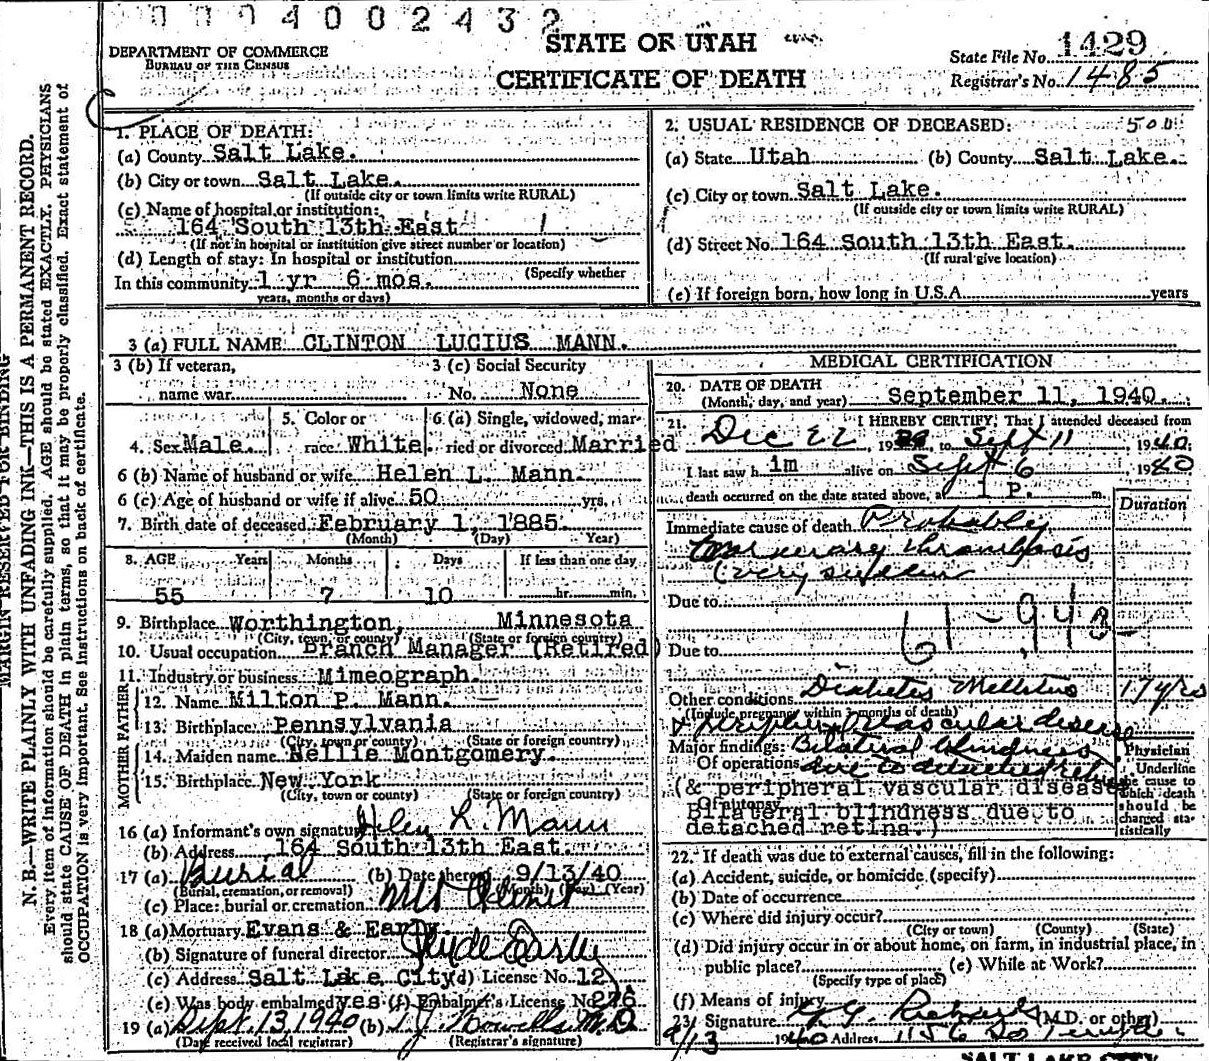 0004002432
STATE OF UTAH
CERTIFICATE OF DEATH
DEPARTMENT OF COMMERCE
BUREAU OF THE CENSUS
State File No. 1429
Registrar's No. 1485
MARGIN RESERVED FOR BINDING
N. B.—WRITE PLAINLY WITH UNFADING INK—THIS IS A PERMANENT RECORD.
Every item of information should be carefully supplied. AGE should be stated EXACTLY. PHYSICIANS
should state CAUSE OF DEATH in plain terms, so that it may be properly classified. Exact statement of
OCCUPATION is very important. See instructions on back of certificate.
1. PLACE OF DEATH:
(a) County Salt Lake.
(b) City or town Salt Lake.
(If outside city or town limits write RURAL)
(c) Name of hospital or institution:
164 South 13th East
(If not in hospital or institution give street number or location)
(d) Length of stay: In hospital or institution
(Specify whether
In this community 1 yr 6 mos.
years, months or days)
2. USUAL RESIDENCE OF DECEASED: 500
(a) State Utah (b) County Salt Lake.
(c) City or town Salt Lake.
(If outside city or town limits write RURAL)
(d) Street No. 164 South 13th East.
(If rural give location)
(e) If foreign born, how long in U.S.A. years
3 (a) FULL NAME CLINTON LUCIUS MANN.
3 (b) If veteran,
name war
3 (c) Social Security
No. None
4. Sex Male.
5. Color or
race White
6 (a) Single, widowed, mar-
ried or divorced Married
6 (b) Name of husband or wife Helen L. Mann.
6 (c) Age of husband or wife if alive 50 yrs.
7. Birth date of deceased February 1, 1885.
(Month) (Day) Year)
8. AGE Years Months Days If less than one day
55 7 10 hr. min.
9. Birthplace Worthington, Minnesota
(City, town, or county) (State or foreign country)
10. Usual occupation Branch Manager (Retired)
11. Industry or business Mimeograph.
MOTHER FATHER
12. Name Milton P. Mann.
13. Birthplace Pennsylvania
(City, town or county) (State or foreign country)
14. Maiden name Nellie Montgomery.
15. Birthplace New York
(City, town or county) (State or foreign country)
16 (a) Informant's own signature Helen L. Mann
(b) Address 164 South 13th East.
17 (a) Burial (b) Date thereof 9/13/40
(Burial, cremation, or removal) (Month) (Day) (Year)
(c) Place: burial or cremation Mt Olivet
18 (a) Mortuary Evans & Early
(b) Signature of funeral director Clyde Early
(c) Address Salt Lake City (d) License No. 12
(e) Was body embalmed yes (f) Embalmer's License No 276
19 (a) Sept. 13, 1940 (b) M.D.
(Date received local registrar) (Registrar's signature)
MEDICAL CERTIFICATION
20. DATE OF DEATH
(Month, day, and year) September 11, 1940.
21. I HEREBY CERTIFY, That I attended deceased from
Dec 22, 1939 to Sept 11, 1940:
I last saw him alive on Sept 6, 1940
death occurred on the date stated above, at 1 P. m.
Duration
Immediate cause of death Probably
coronary thrombosis
(very sudden
Due to
61 - 94B
Due to
Other conditions Diabetes Mellitus 17 yrs
(Include pregnancy within 3 months of death)
& peripheral vascular disease
Major findings: Bilateral blindness
Of operations due to detached retina
(& peripheral vascular disease
Of autopsy
Bilateral blindness due to
detached retina.)
Physician
Underline
the cause to
which death
should be
charged sta-
tistically
22. If death was due to external causes, fill in the following:
(a) Accident, suicide, or homicide (specify)
(b) Date of occurrence
(c) Where did injury occur?
(City or town) (County) (State)
(d) Did injury occur in or about home, on farm, in industrial place, in
public place? (e) While at Work?
(Specify type of place)
(f) Means of injury
23. Signature G. G. Richards (M.D. or other)
9/13 1940 Address 1156 So
SALT LAKE CITY